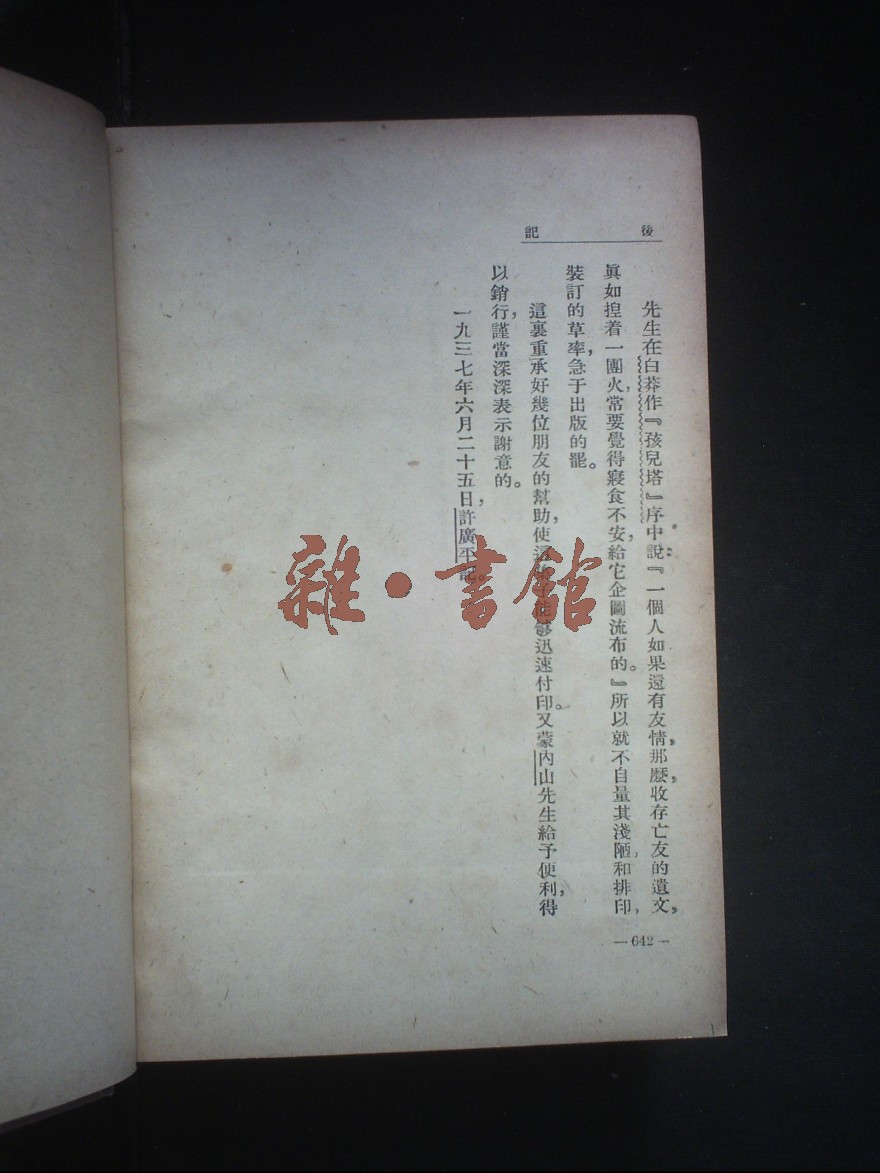 後記
先生在白莽作『孩兒塔』序中說:『一個人如果還有友情,那麽收存亡友的遺文,
眞如揑着一團火,常要覺得寢食不安,給它企圖流布的。』所以就不自量其淺陋和排印,
裝訂的草率,急于出版的罷。
這裏重承好幾位朋友的幫助,使這 能够迅速付印。又蒙內山先生給予便利,得
以銷行,謹當深深表示謝意的。
一九三七年六月二十五日,許廣平記。
—642—
雜·書館